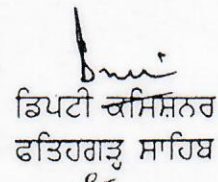 ਡਿਪਟੀ ਕਮਿਸ਼ਨਰ
ਫਤਿਹਗੜ੍ਹ ਸਾਹਿਬ